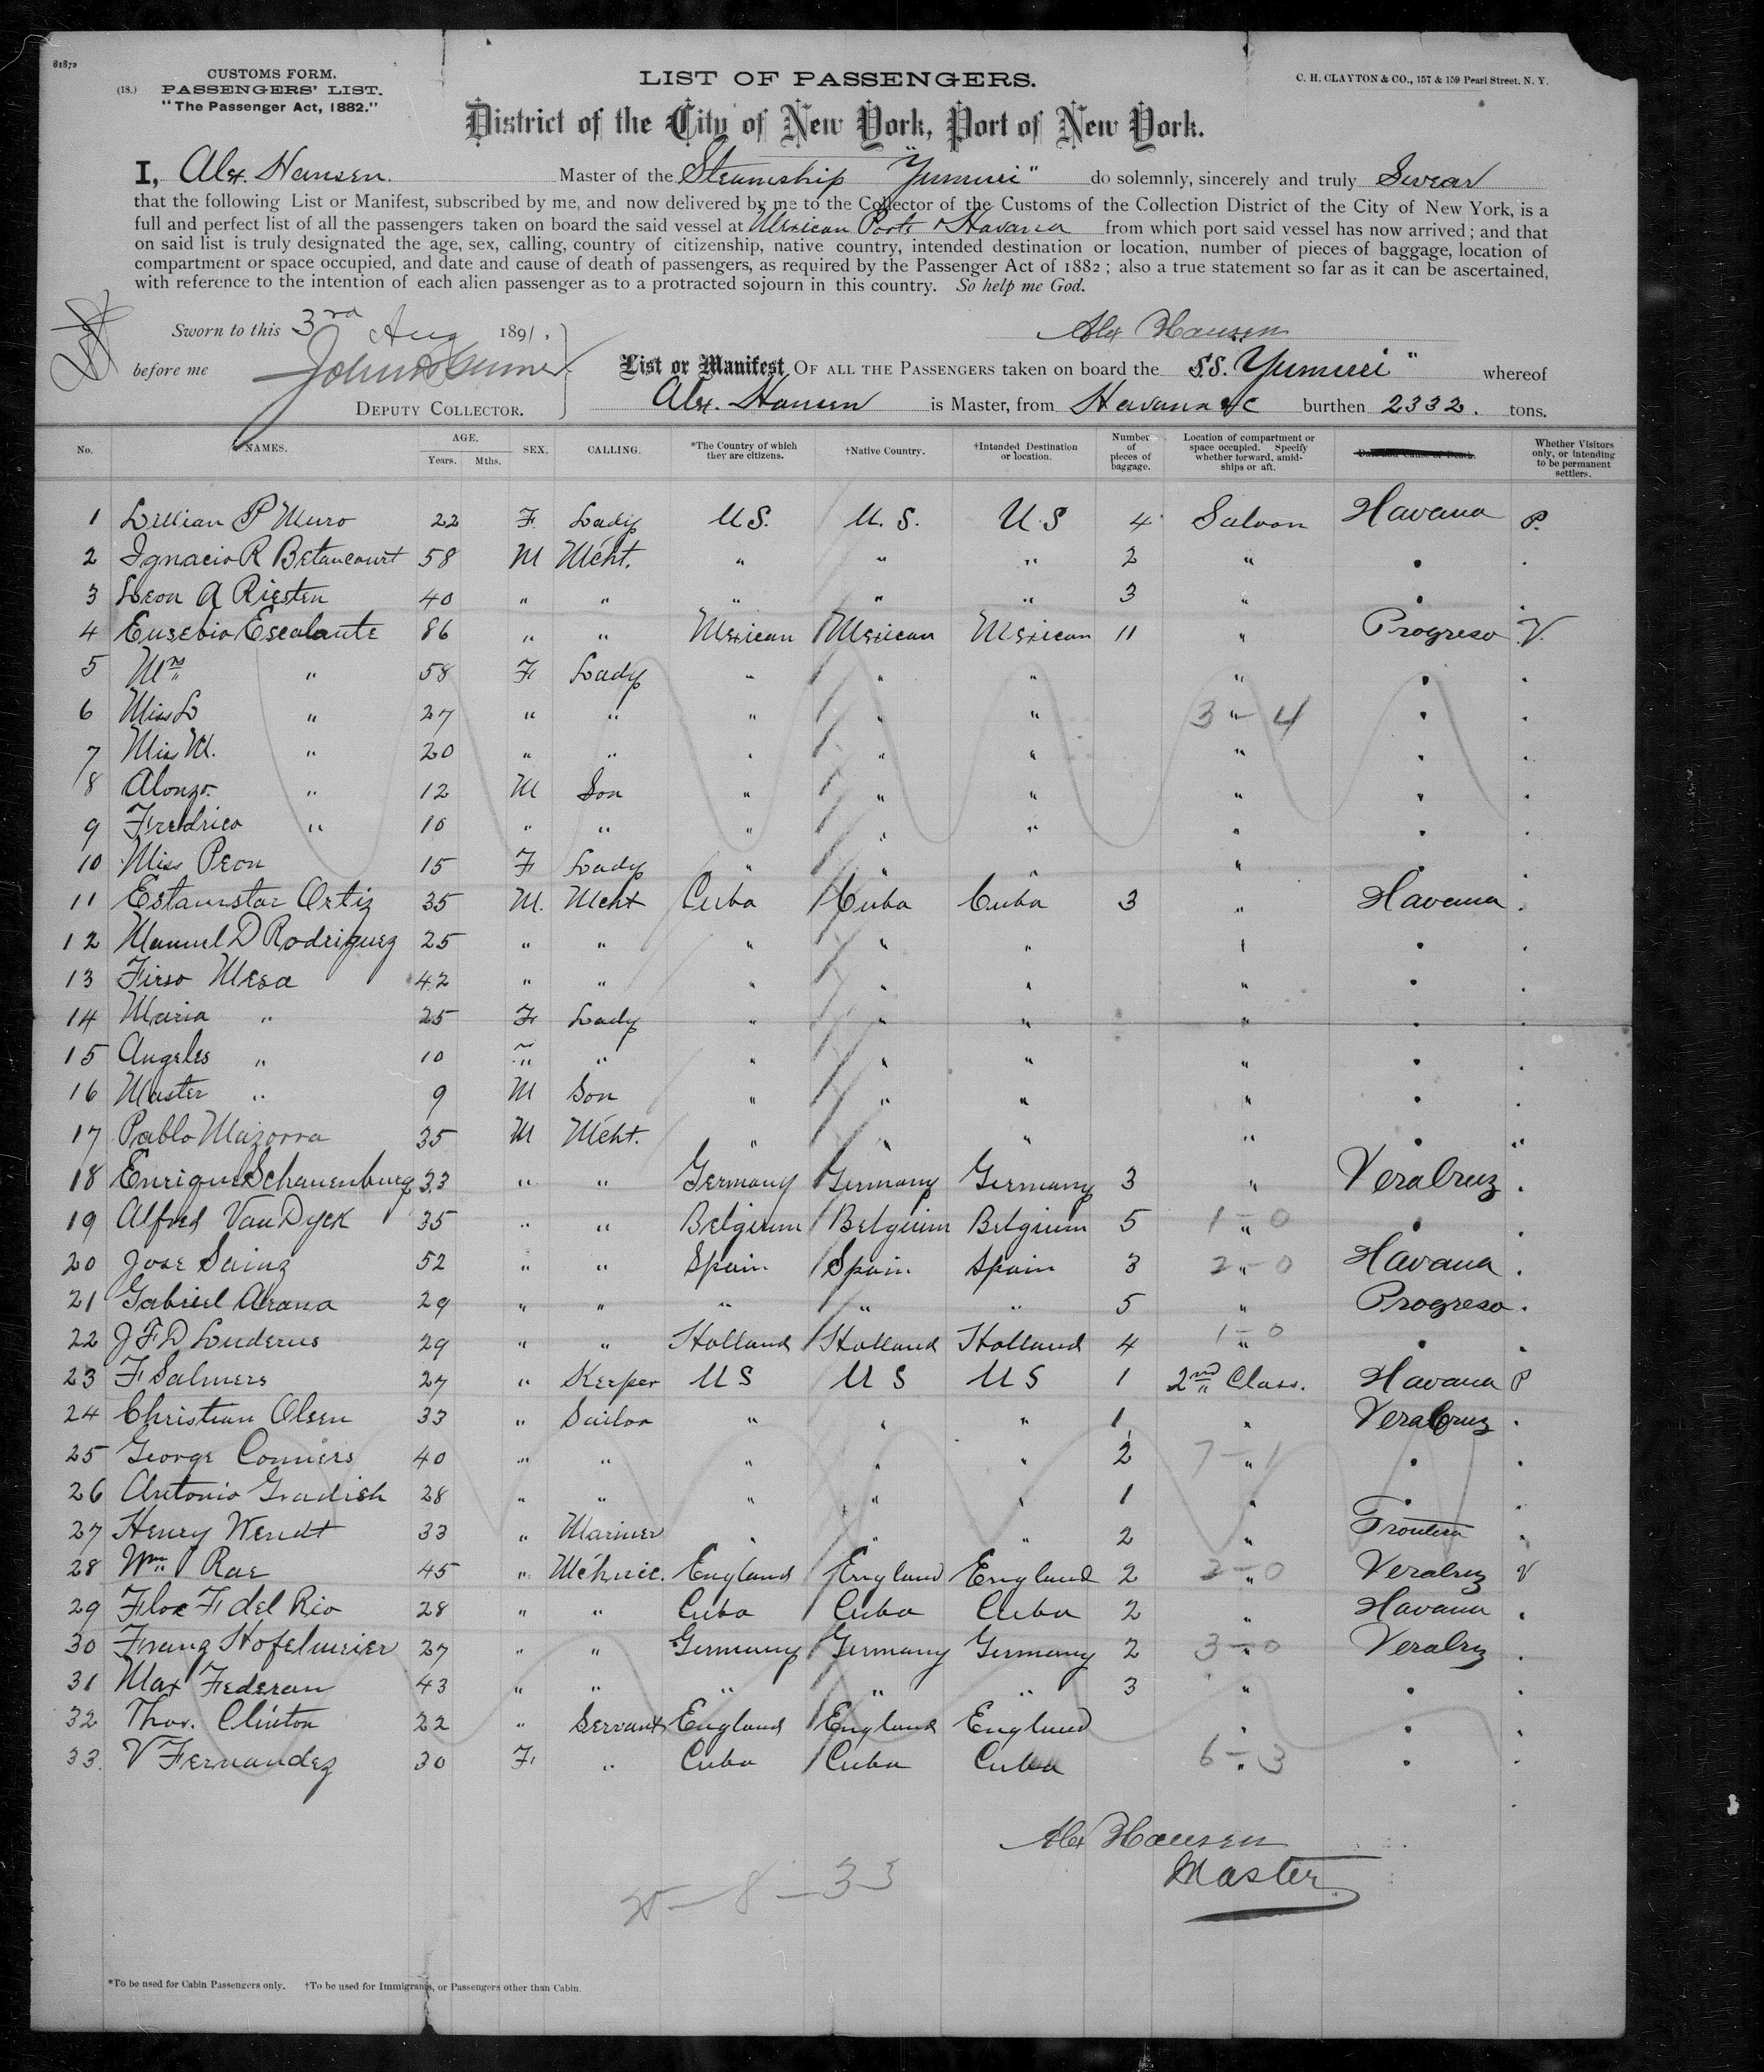 81872
(18.)
CUSTOMS FORM.
PASSENGERS' LIST.
"The Passenger Act, 1882."
LIST OF PASSENGERS.
C. H. CLAYTON & CO., 157 & 159 Pearl Street, N. Y.
District of the City of New York, Port of New York.
I, Alex. Hansen. Master of the Steamship "Yumuri" do solemnly, sincerely and truly Swear
that the following List or Manifest, subscribed by me, and now delivered by me to the Collector of the Customs of the Collection District of the City of New York, is a
full and perfect list of all the passengers taken on board the said vessel at Mexican Ports & Havana from which port said vessel has now arrived; and that
on said list is truly designated the age, sex, calling, country of citizenship, native country, intended destination or location, number of pieces of baggage, location of
compartment or space occupied, and date and cause of death of passengers, as required by the Passenger Act of 1882; also a true statement so far as it can be ascertained,
with reference to the intention of each alien passenger as to a protracted sojourn in this country. So help me God.
Sworn to this 3rd Aug 1891.
Alex Hansen
before me
DEPUTY COLLECTOR.
List or Manifest OF ALL THE PASSENGERS taken on board the S.S. Yumuri" whereof
Alex. Hansen is Master, from Havana &c burthen 2332. tons.
No. NAMES. AGE. Years. Mths. SEX. CALLING. *The Country of which they are citizens. †Native Country. †Intended Destination or location. Number of pieces of baggage. Location of compartment or space occupied. Specify whether forward, amidships or aft. Date and Cause of Death. Whether Visitors only, or intending to be permanent settlers.
1 Lillian P Muro 22 F. Lady U S. U. S. U S 4 Saloon Havana P.
2 Ignacio R Betancourt 58 M Mcht. " " " 2 " " .
3 Leon A Riesten 40 " " " " " 3 " " .
4 Eusebio Escalante 86 " " Mexican Mexican Mexican 11 " Progreso V.
5 Mrs " 58 F Lady " " " " " .
6 Miss L " 27 " " " " " " 3 - 4 " .
7 Miss M. " 20 " " " " " " " .
8 Alonzo. " 12 M Son " " " " " .
9 Fredrico " 10 " " " " " " " .
10 Miss Peon 15 F Lady " " " " " .
11 Estaurstar Ortiz 35 M. Mcht Cuba Cuba Cuba 3 " Havana .
12 Manuel D Rodriguez 25 " " " " " " " .
13 Firso Mesa 42 " " " " " " " .
14 Maria " 25 F Lady " " " " " .
15 Angeles " 10 " " " " " " " .
16 Master " 9 M Son " " " " " .
17 Pablo Mazorra 35 M Mcht. " " " " " "
18 Enrique Schauenburg 33 " " Germany Germany Germany 3 " Vera Cruz .
19 Alfred Van Dyck 35 " " Belgium Belgium Belgium 5 " 1 - 0 " .
20 Jose Sainz 52 " " Spain Spain Spain 3 " 2 - 0 Havana .
21 Gabriel Arana 29 " " " " " 5 " Progreso .
22 J F D Luderus 29 " " Holland Holland Holland 4 " 1 - 0 " .
23 F Salmers 27 " Keeper U S U S U S 1 2nd Class. Havana P
24 Christian Olsen 33 " Sailor " " " 1 " Vera Cruz .
25 George Conniers 40 " " " " " 2 " 7 - 1 " .
26 Antonio Gradish 28 " " " " " 1 " " .
27 Henry Wendt 33 " Mariner " " " 2 " Frontera "
28 Wm Rae 45 " Mchnic. England England England 2 " 2 - 0 Vera Cruz V
29 Flor F del Rio 28 " " Cuba Cuba Cuba 2 " Havana .
30 Franz Hofelmeier 27 " " Germany Germany Germany 2 " 3 - 0 Vera Cruz .
31 Max Federan 43 " " " " " 3 " " .
32 Thos. Clinton 22 " Servant England England England " " .
33. V Fernandez 30 F " Cuba Cuba Cuba " 6 - 3 " .
Alex Hansen
Master
25 - 8 - 33
*To be used for Cabin Passengers only. †To be used for Immigrants, or Passengers other than Cabin.